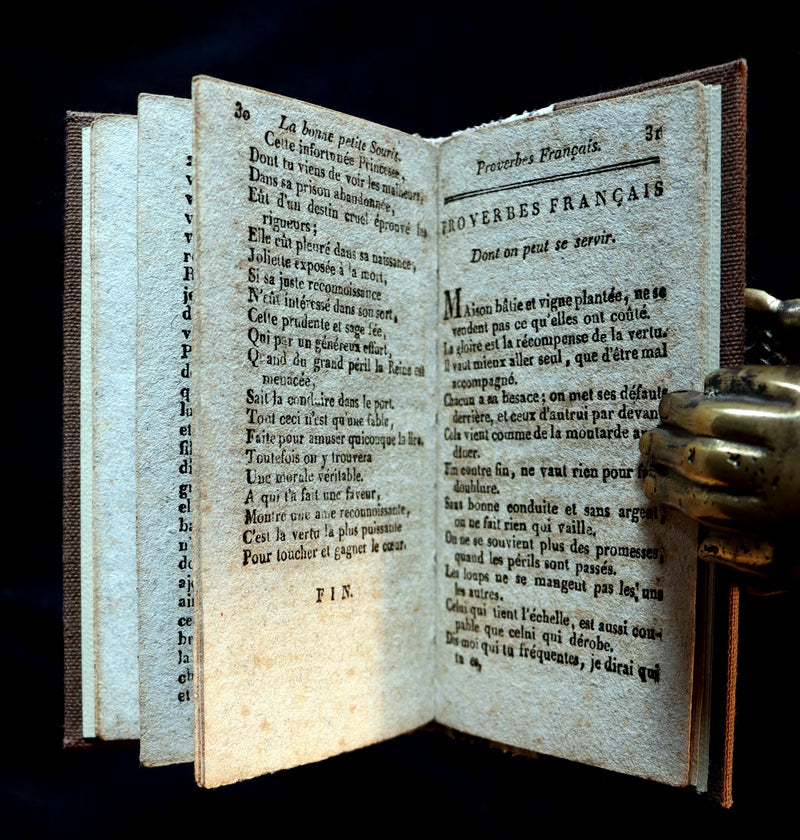 30
La bonne petite Souris.
Cette infortunée Princesse,
Dont tu viens de voir les malheurs,
Dans sa prison abandonnée,
Eût d'un destin cruel éprouvé les
rigueurs ;
Elle eût pleuré dans sa naissance,
Joliette exposée à la mort,
Si sa juste reconnoissance
N'eût intéressé dans son sort,
Cette prudente et sage fée,
Qui par un généreux effort,
Quand du grand péril la Reine est
menacée,
Sait la conduire dans le port.
Tout ceci n'est qu'une fable,
Faite pour amuser quiconque la lira,
Toutefois on y trouvera
Une morale véritable.
A qui t'a fait une faveur,
Montre une ame reconnoissante,
C'est la vertu la plus puissante
Pour toucher et gagner le cœur.
FIN.
Proverbes Français.
31
PROVERBES FRANÇAIS
Dont on peut se servir.
MAison bâtie et vigne plantée, ne se
vendent pas ce qu'elles ont coûté.
La gloire est la récompense de la vertu.
Il vaut mieux aller seul, que d'être mal
accompagné.
Chacun a sa besace ; on met ses défauts
derrière, et ceux d'autrui par devant
Cela vient comme de la moutarde a
dîner.
Fin contre fin, ne vaut rien pour
doublure.
Sans bonne conduite et sans argent,
on ne fait rien qui vaille.
On ne se souvient plus des promesses,
quand les périls sont passés.
Les loups ne se mangent pas les uns
les autres.
Celui qui tient l'échelle, est aussi cou-
pable que celui qui dérobe.
Dis moi qui tu fréquentes, je dirai qui
tu es,